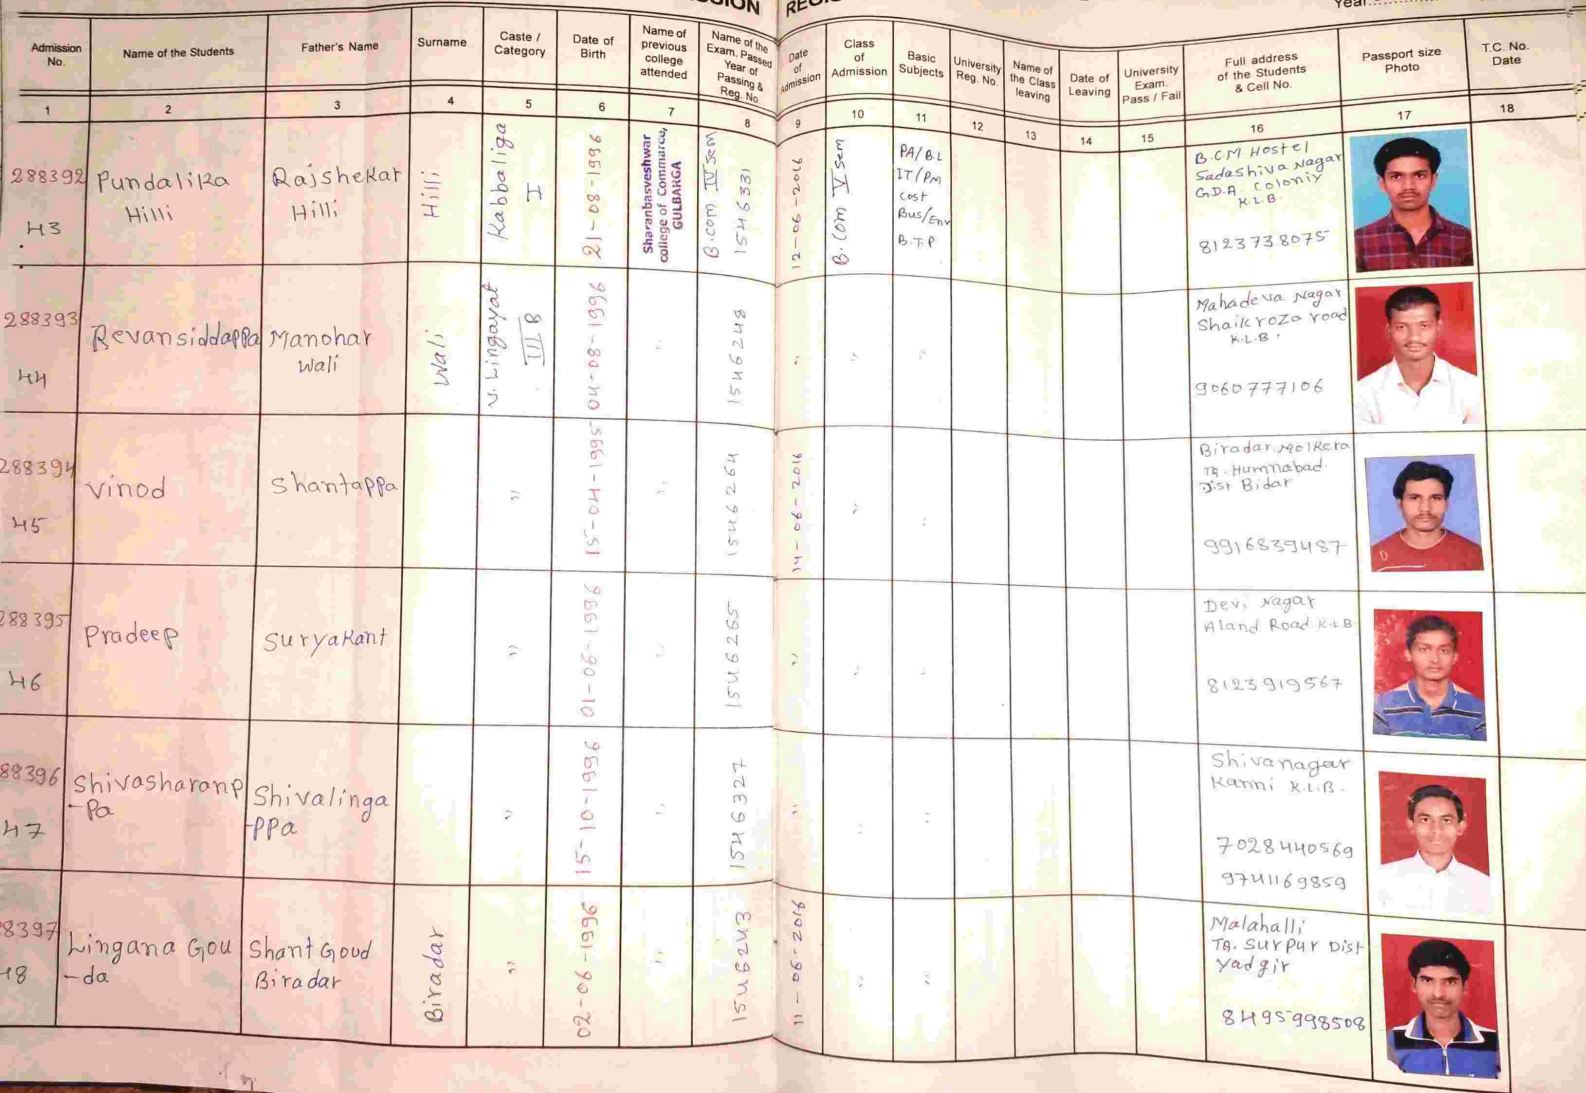 REG
Year
Admission No.
Name of the Students
Father's Name
Surname
Caste / Category
Date of Birth
Name of previous college attended
Name of the Exam. Passed Year of Passing & Reg. No.
Date of Admission
Class of Admission
Basic Subjects
University Reg. No.
Name of the Class leaving
Date of Leaving
University Exam. Pass / Fail
Full address of the Students & Cell No.
Passport size Photo
T.C. No. Date
1 2 3 4 5 6 7 8 9 10 11 12 13 14 15 16 17 18
288392
43
Pundalika
Hilli
Rajshekar
Hilli
Hilli
Kabbaliga
I
21-08-1996
Sharanbasveshwar
college of Commarce,
GULBARGA
B.com IV Sem
1546331
12-06-2016
B.Com V Sem
PA/B.L
IT/PM
Cost
Bus/Env
B.T.P
B.C.M Hostel
Sadashiva Nagar
G.D.A Coloniy
K.L.B.
8123738075
288393
44
Revansiddappa
Manohar
Wali
Wali
V. Lingayat
III B
04-08-1996
"
1546248
"
"
"
Mahadeva Nagar
Shaik roza road
K.L.B.
9060777106
288394
45
Vinod
Shantappa
"
15-04-1995
"
1546264
14-06-2016
"
"
Biradar
TQ. Humnabad.
Dist Bidar
9916839487
288395
46
Pradeep
Suryakant
"
01-06-1996
"
1546265
"
"
"
Devi Nagar
Aland Road K.L.B.
8123919567
88396
47
Shivasharanp
-pa
Shivalinga
-ppa
"
15-10-1996
"
1546327
"
"
"
Shivanagar
Kanni K.L.B.
7028440569
9741169859
8397
48
Lingana Gou
-da
Shant Goud
Biradar
Biradar
"
02-06-1996
"
1546243
11-06-2016
"
"
Malahalli
TQ. Surpur Dist
Yadgir
8495998508